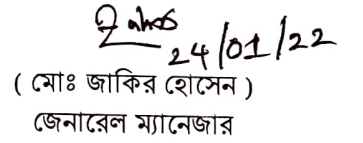 24/01/22
( মোঃ জাকির হোসেন )
জেনারেল ম্যানেজার